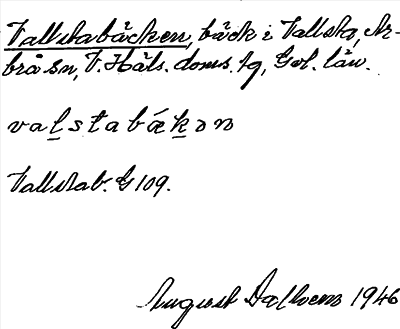 Vallstabäcken, bäck i Vallsta, Ar-
brå sn, V. Häls. doms. tg, Gvl. län.
valstabäkən
Vallstab. G 109.
August Dalhem 1946